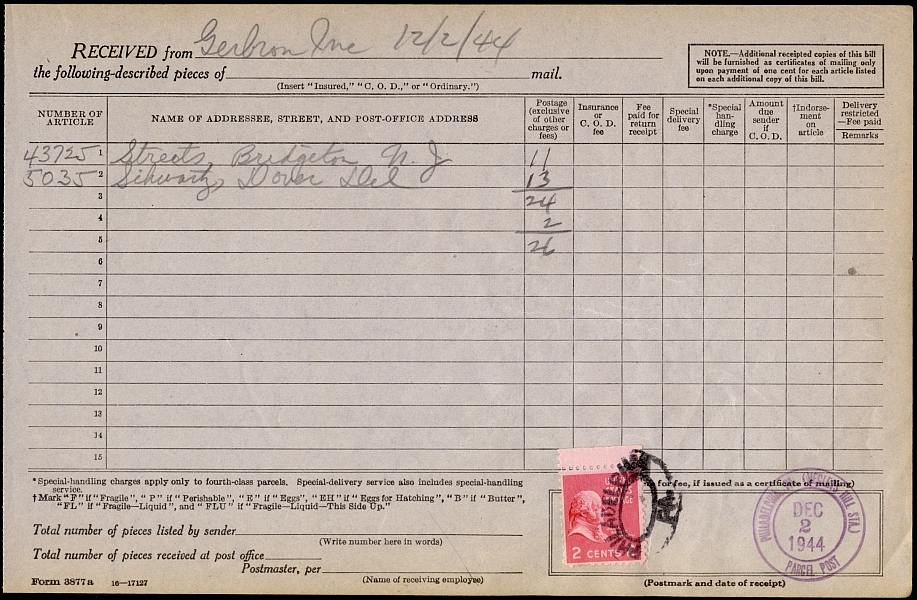 RECEIVED from Gerbron Inc 12/2/44
the following-described pieces of mail.
(Insert "Insured," "C. O. D.," or "Ordinary.")
NOTE.—Additional receipted copies of this bill
will be furnished as certificates of mailing only
upon payment of one cent for each article listed
on each additional copy of this bill.
NUMBER OF ARTICLE
NAME OF ADDRESSEE, STREET, AND POST-OFFICE ADDRESS
Postage (exclusive of other charges or fees)
Insurance or C. O. D. fee
Fee paid for return receipt
Special delivery fee
*Special handling charge
Amount due sender if C. O. D.
†Indorsement on article
Delivery restricted—Fee paid
Remarks
43725 1 Streets, Bridgeton N. J 11
5035 2 Schwartz, Dover Del 13
3 24
4 2
5 26
6
7
8
9
10
11
12
13
14
15
*Special-handling charges apply only to fourth-class parcels. Special-delivery service also includes special-handling
service.
†Mark "F" if "Fragile", "P" if "Perishable", "E" if "Eggs", "EH" if "Eggs for Hatching", "B" if "Butter",
"FL" if "Fragile—Liquid", and "FLU" if "Fragile—Liquid—This Side Up."
Total number of pieces listed by sender
(Write number here in words)
Total number of pieces received at post office
Postmaster, per
(Name of receiving employee)
Form 3877a 16—17127
for fee, if issued as a certificate of mailing)
2 CENTS
PHILADELPHIA PA.
DEC
2
1944
PARCEL POST
(Postmark and date of receipt)